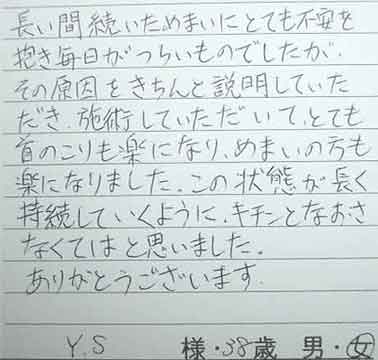 長い間続いためまいにとても不安を
抱き毎日がつらいものでしたが、
その原因をきちんと説明していた
だき、施術していただいて、とても
首のこりも楽になり、めまいの方も
楽になりました。この状態が長く
持続していくように、キチンとなおさ
なくてはと思いました。
ありがとうございます。
Y.S 様・38歳 男・女